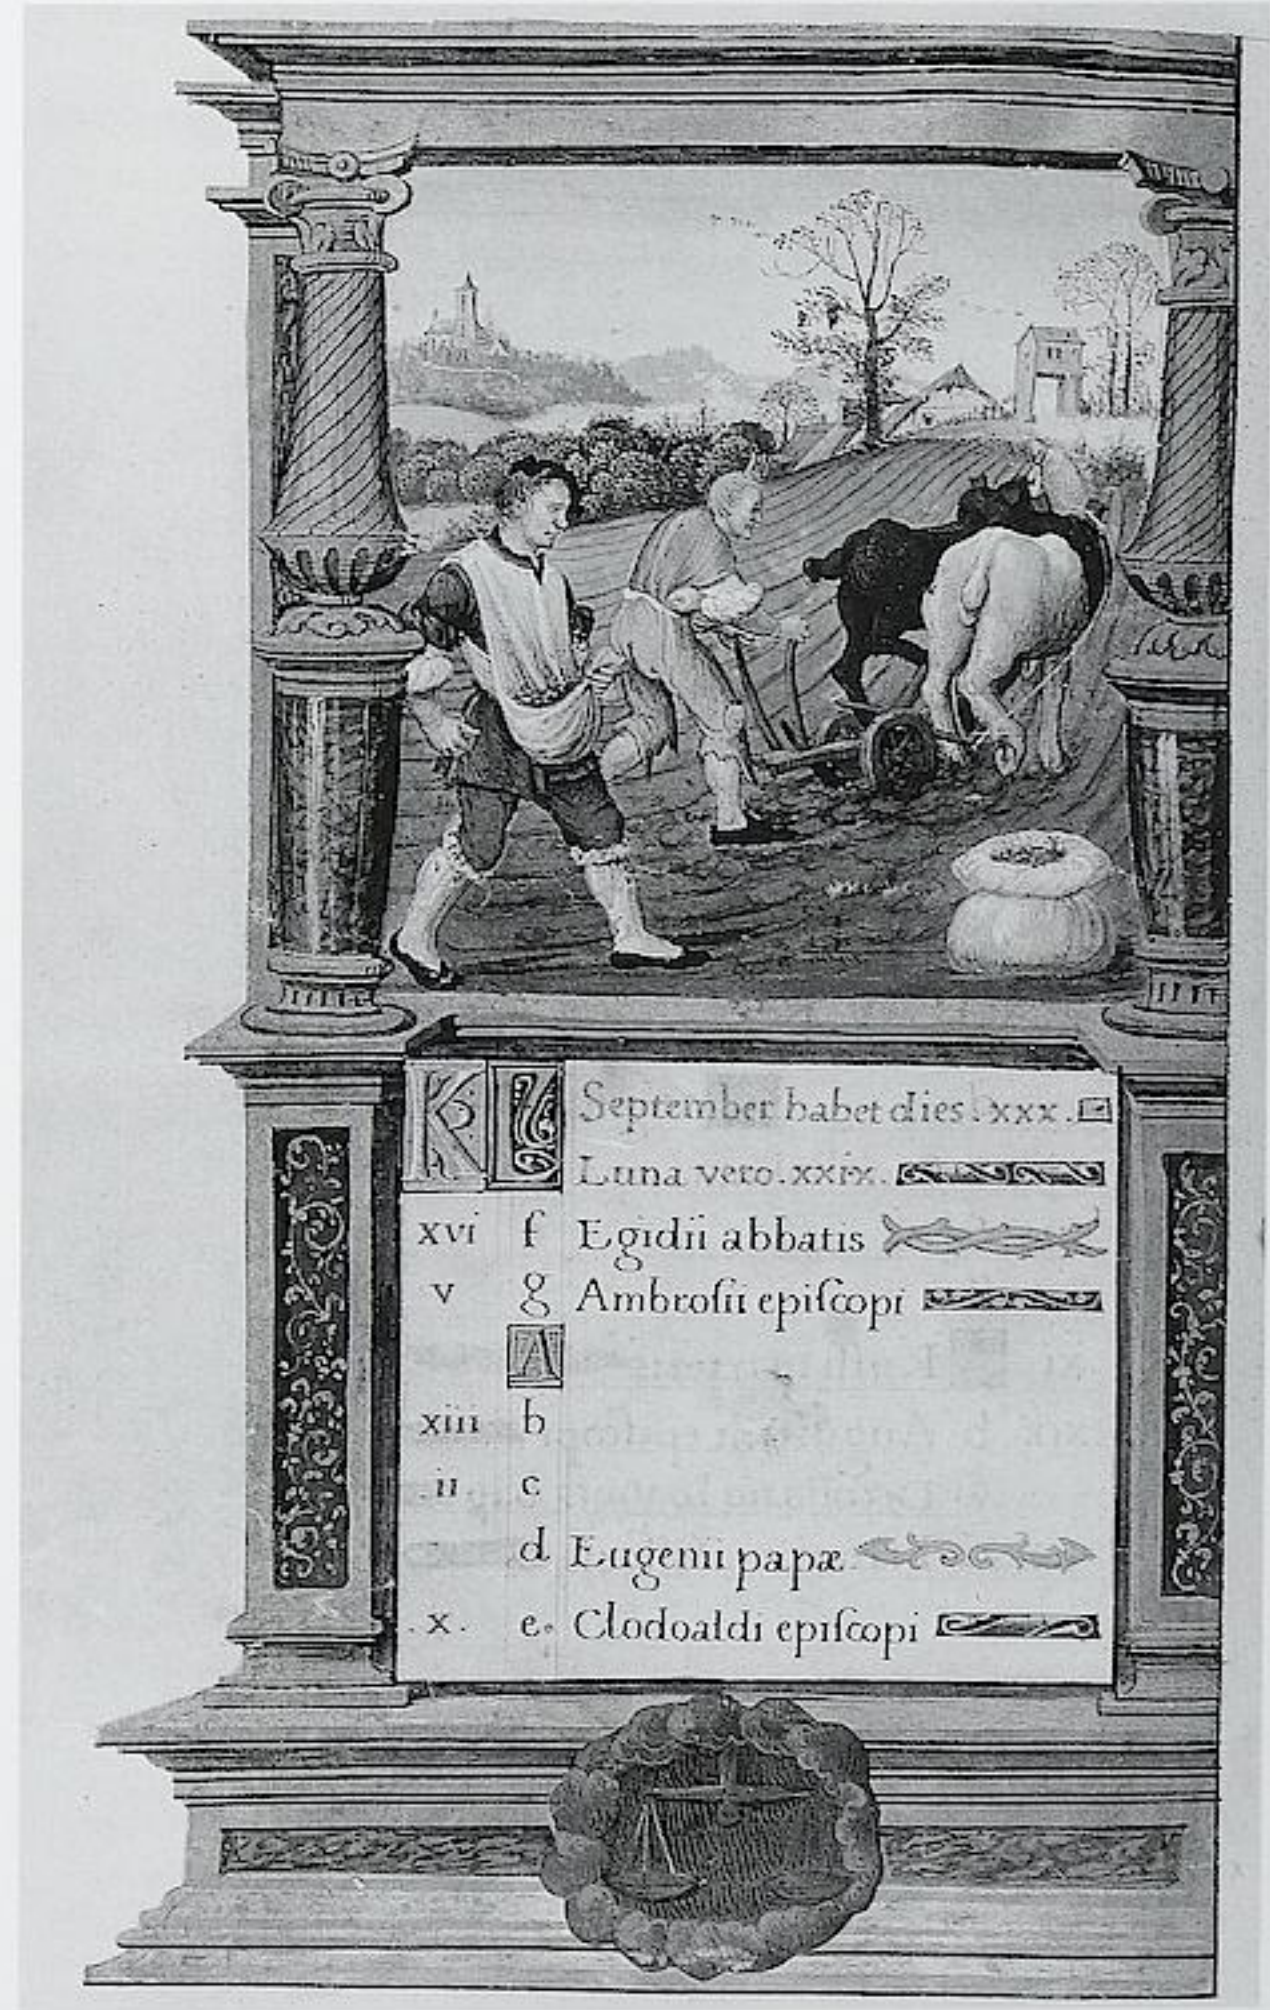 KL September habet dies .xxx.
Luna vero .xxix.
xvi f Egidii abbatis
v g Ambrosii episcopi
A
xiii b
ii c
d Eugenii papæ
.x. e. Clodoaldi episcopi